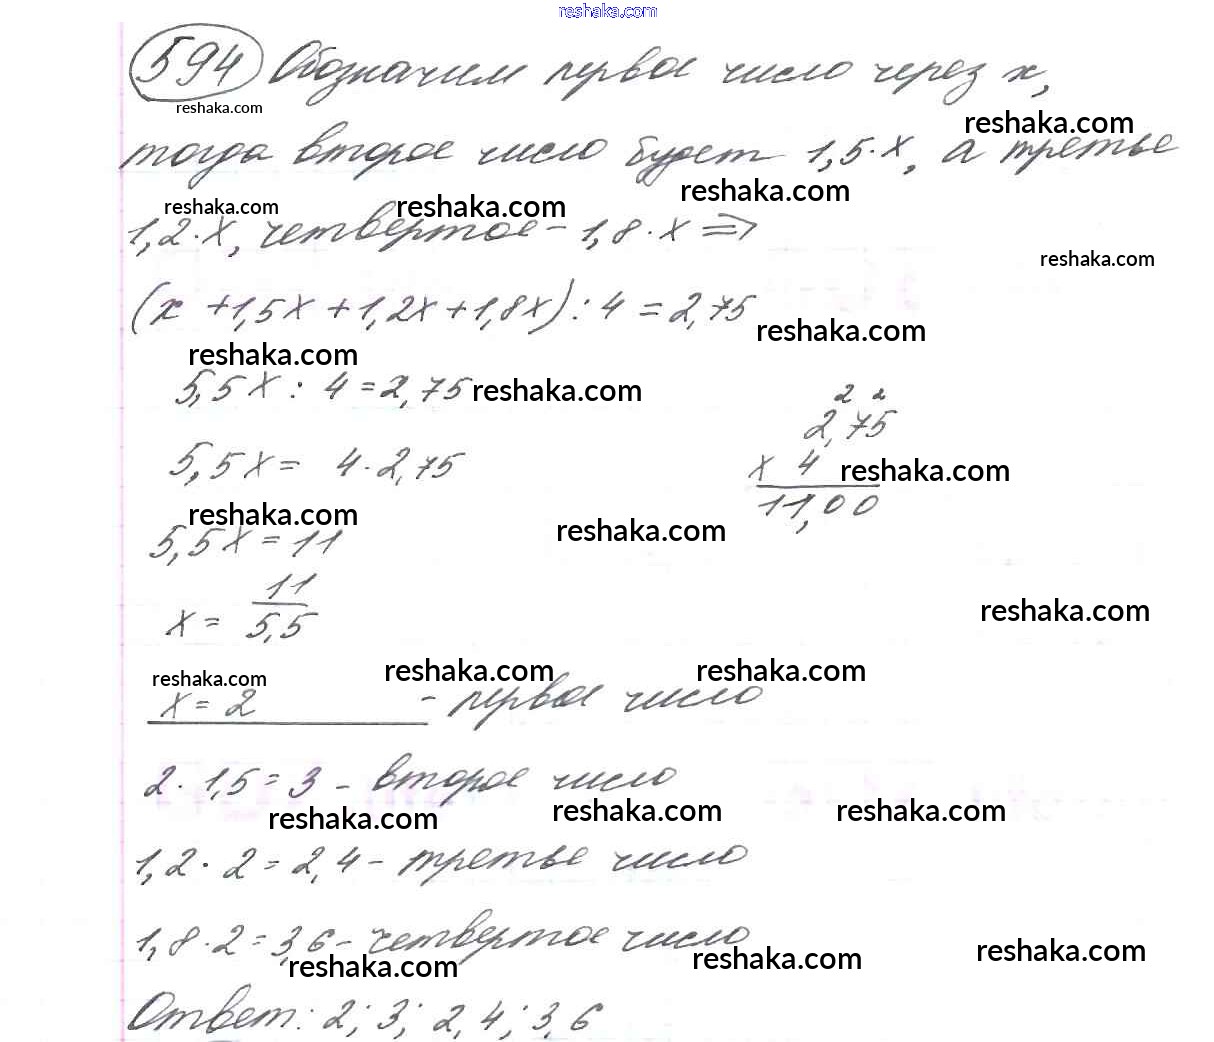 reshaka.com
594 Обозначим первое число через x,
reshaka.com
reshaka.com
тогда второе число будет 1,5·x, а третье
reshaka.com reshaka.com reshaka.com
1,2·x, четвертое - 1,8·x ⇒
reshaka.com
(x + 1,5x + 1,2x + 1,8x) : 4 = 2,75
reshaka.com
reshaka.com
5,5x : 4 = 2,75 reshaka.com
2 2
2,75
5,5x = 4·2,75
x 4 reshaka.com
11,00
reshaka.com reshaka.com
5,5x = 11
x = 11
5,5
reshaka.com
reshaka.com reshaka.com reshaka.com
x = 2 - первое число
2·1,5 = 3 - второе число
reshaka.com reshaka.com reshaka.com
1,2·2 = 2,4 - третье число
1,8·2 = 3,6 - четвертое число
reshaka.com reshaka.com reshaka.com
Ответ: 2; 3; 2,4; 3,6